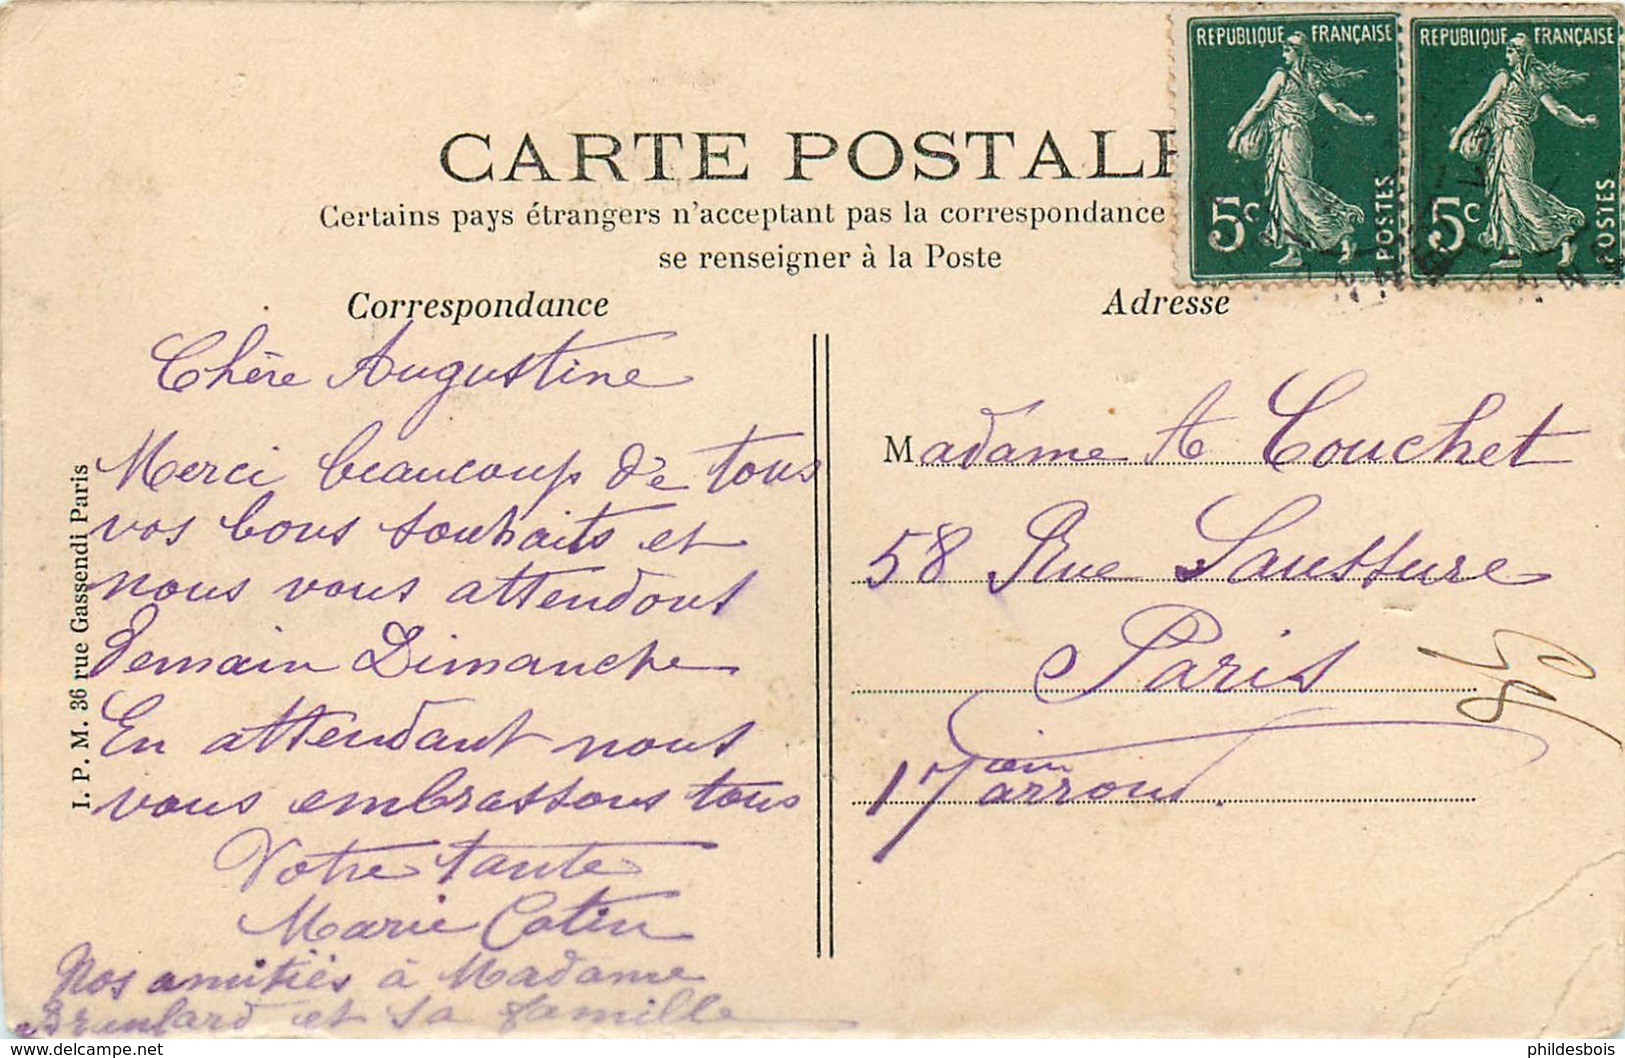 CARTE POSTALE
Certains pays étrangers n'acceptant pas la correspondance
se renseigner à la Poste
Correspondance
Chère Augustine
Merci beaucoup de tous
vos bons souhaits et
nous vous attendons
Demain Dimanche
En attendant nous
vous embrassons tous
Votre tante
Marie Catin
Nos amitiés à Madame
et sa famille
I. P. M. 36 rue Gassendi Paris
Adresse
Madame A Couchet
58 Rue Saussure
Paris
17 em arrons.
REPUBLIQUE FRANÇAISE
5c
POSTES
REPUBLIQUE FRANÇAISE
5c
POSTES
www.delcampe.net
phildesbois